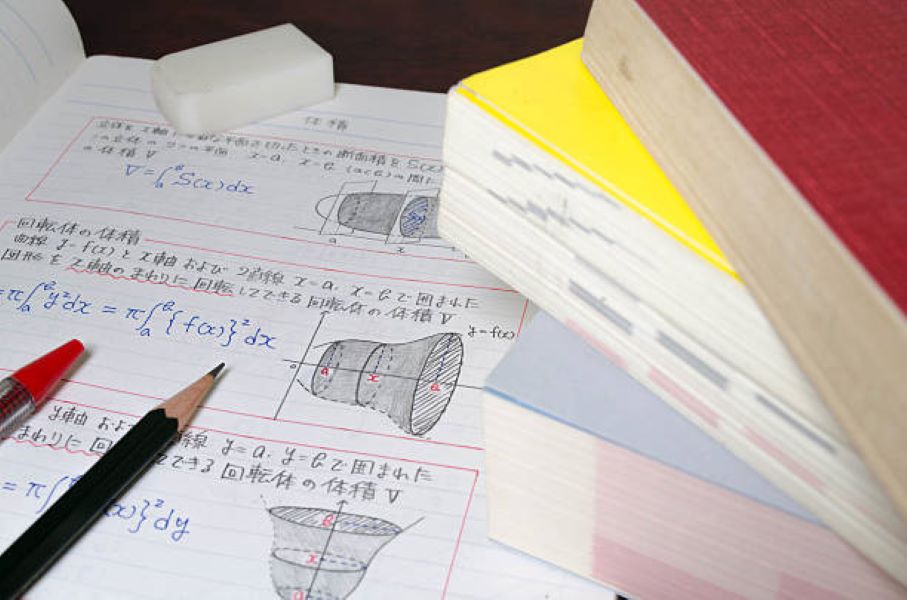 体積
立体を x軸に垂直な平面で切ったときの断面積を S(x)
この立体の 2つの平面 x=a, x=b (a<b) の間に
の体積 V
V=∫ₐᵇ S(x)dx
a x
回転体の体積
曲線 y=f(x) と x軸 および 2直線 x=a, x=b で囲まれた
図形を x軸のまわりに回転してできる回転体の体積 V
=π∫ₐᵇ y²dx = π∫ₐᵇ {f(x)}²dx
y=f(x)
a x b
y軸 および 直線 y=a, y=b で囲まれた
まわりに回 てできる 回転体の体積 V
= π∫ (x)}²dy
b
x
a